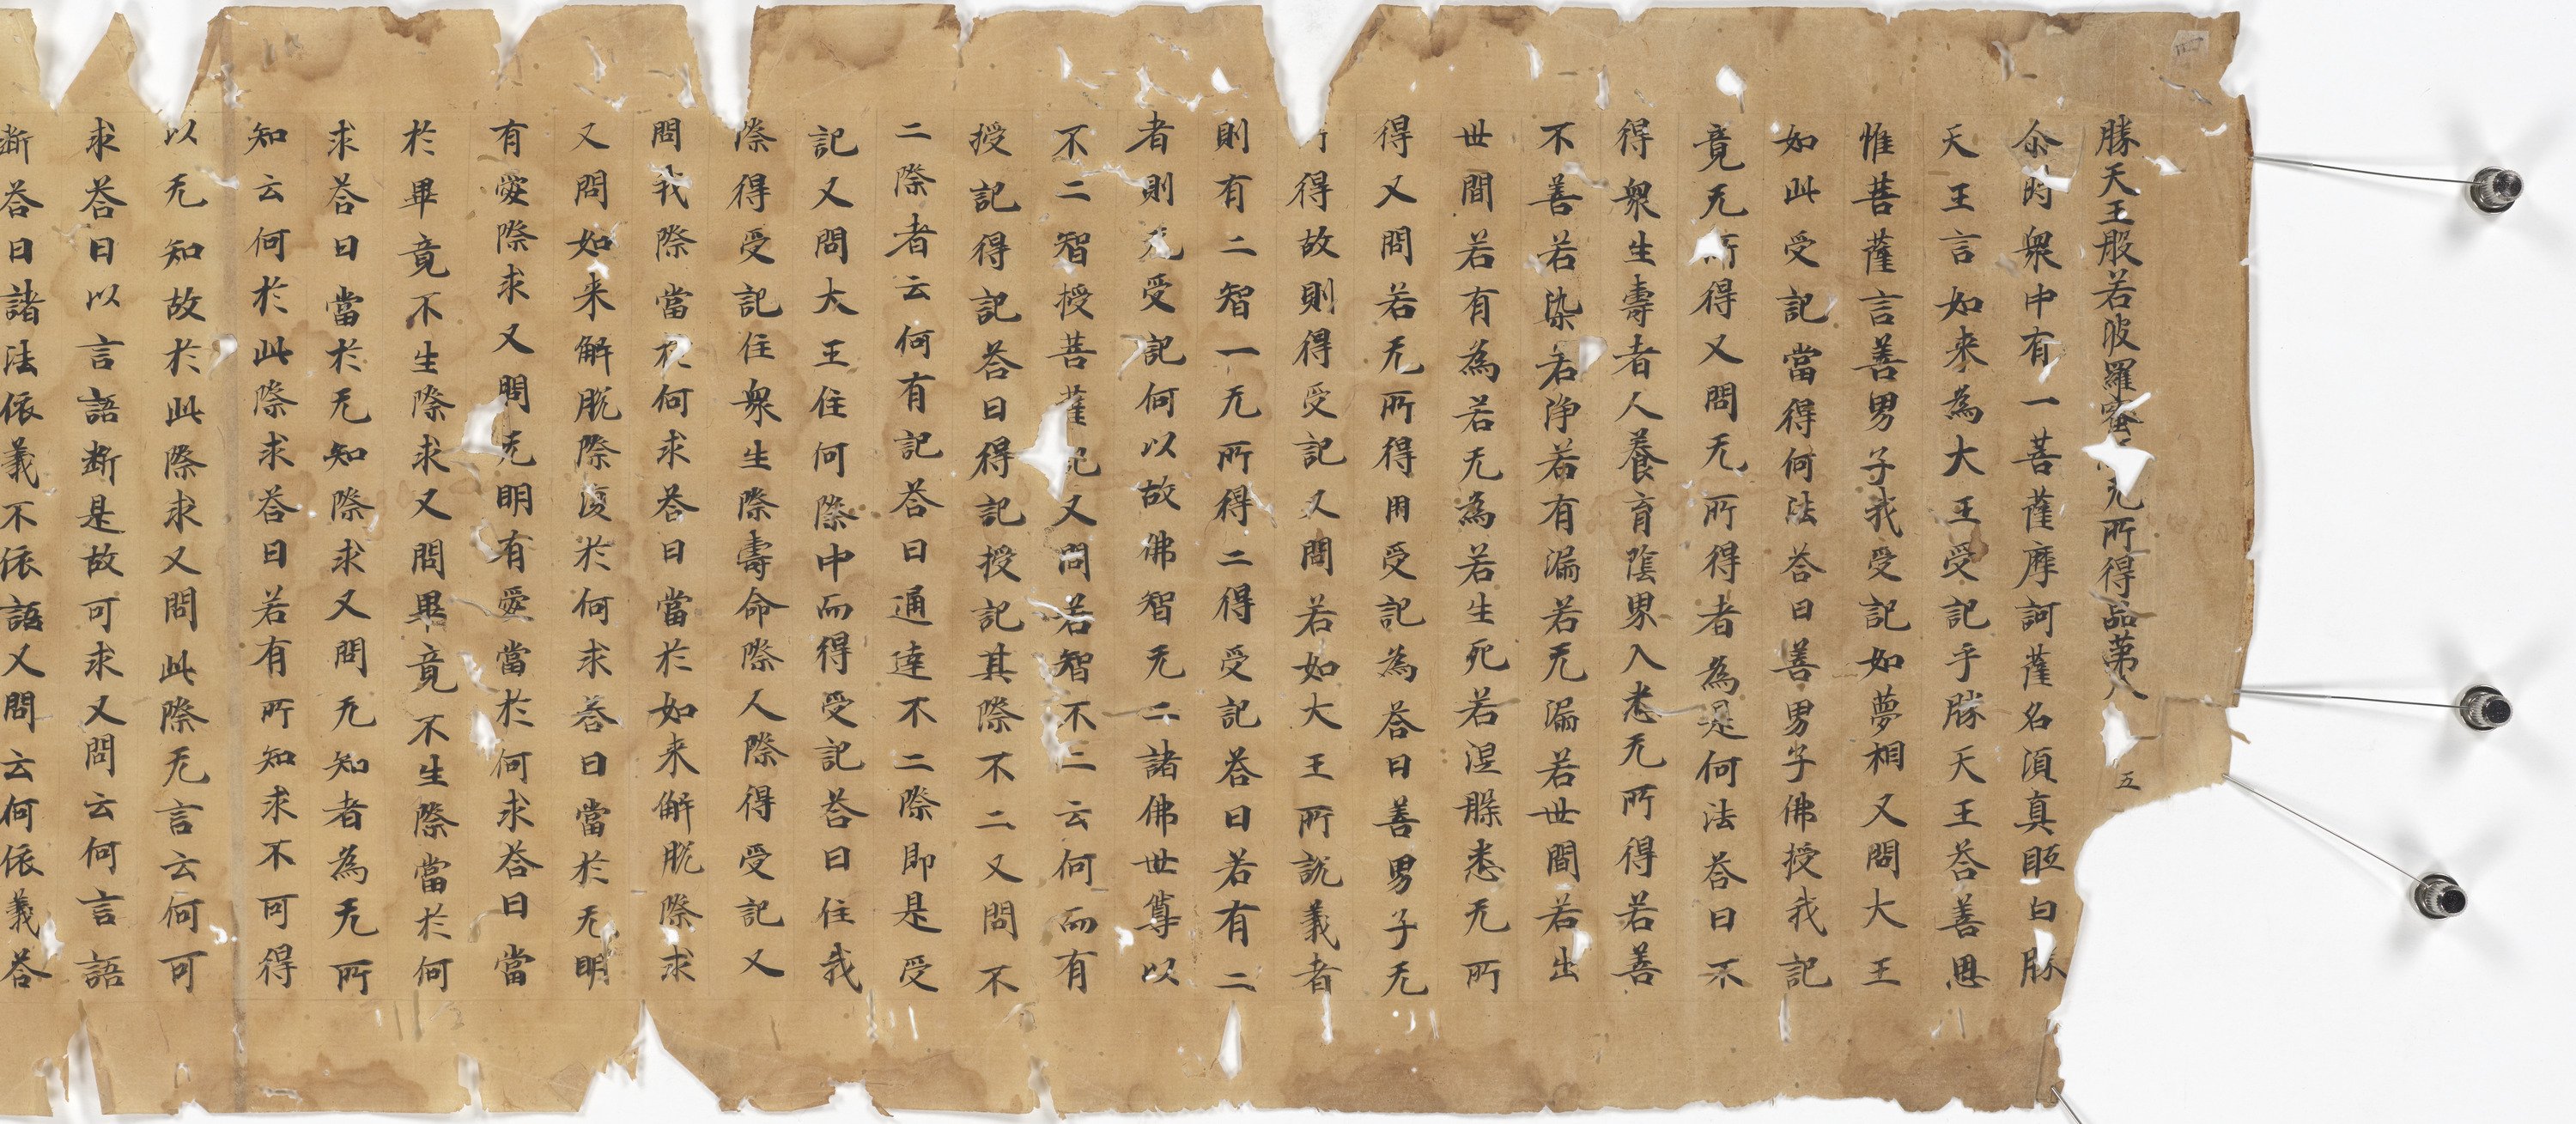 勝天王般若波羅蜜無所得品第八 五
尒時衆中有一菩薩摩訶薩名湏真胝白勝
天王言如来為大王受記乎勝天王荅善思
惟菩薩言善男子我受記如夢相又問大王
如此受記當得何法荅曰善男子佛授我記
竟无所得又問无所得者為是何法荅曰不
得衆生壽者人養育陰界入悉无所得若善
不善若染若淨若有漏若无漏若世間若出
世間若有為若无為若生死若涅槃悉无所
得又問若无所得用受記為荅曰善男子无
所得故則得受記又問若如大王所說義者
則有二智一无所得二得受記荅曰若有二
者則无受記何以故佛智无二諸佛世尊以
不二智授菩薩記又問若智不二云何而有
授記得記荅曰得記授記其際不二又問不
二際者云何有記荅曰通達不二際即是受
記又問大王住何際中而得受記荅曰住我
際得受記住衆生際壽命際人際得受記又
問我際當於何求荅曰當於如来解脫際求
又問如来解脫際復於何求荅曰當於无明
有愛際求又問无明有愛當於何求荅曰當
於畢竟不生際求又問畢竟不生際當於何
求荅曰當於无知際求又問无知者為无所
知云何於此際求荅曰若有所知求不可得
以无知故於此際求又問此際无言云何可
求荅曰以言語断是故可求又問云何言語
断荅曰諸法依義不依語又問云何依義荅